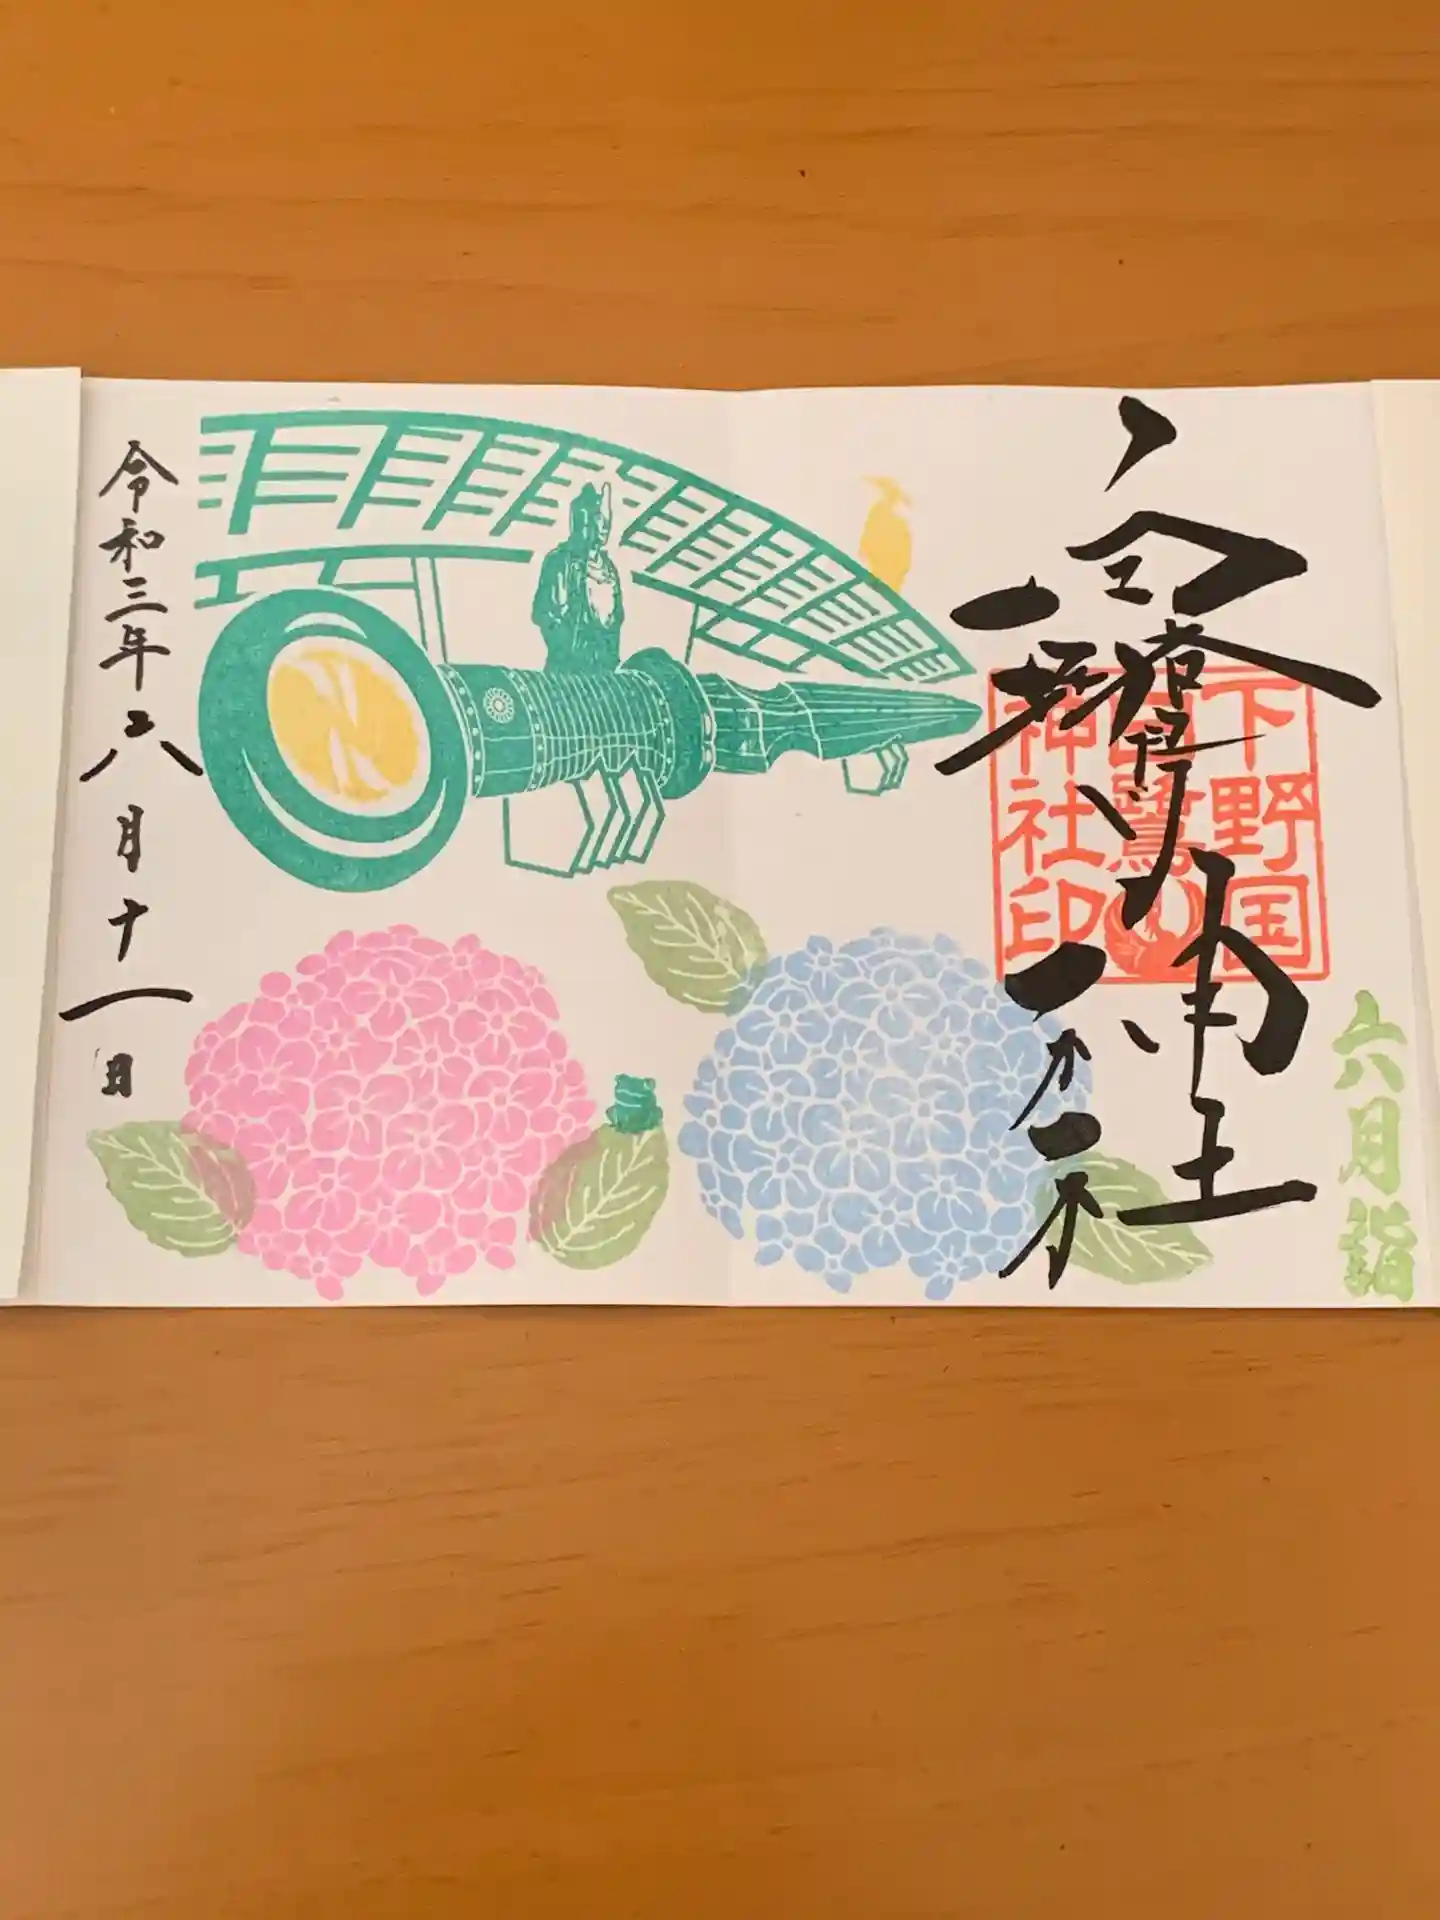 六月詣
白鷺神社
下野国
白鷺
神社印
令和三年六月十一日